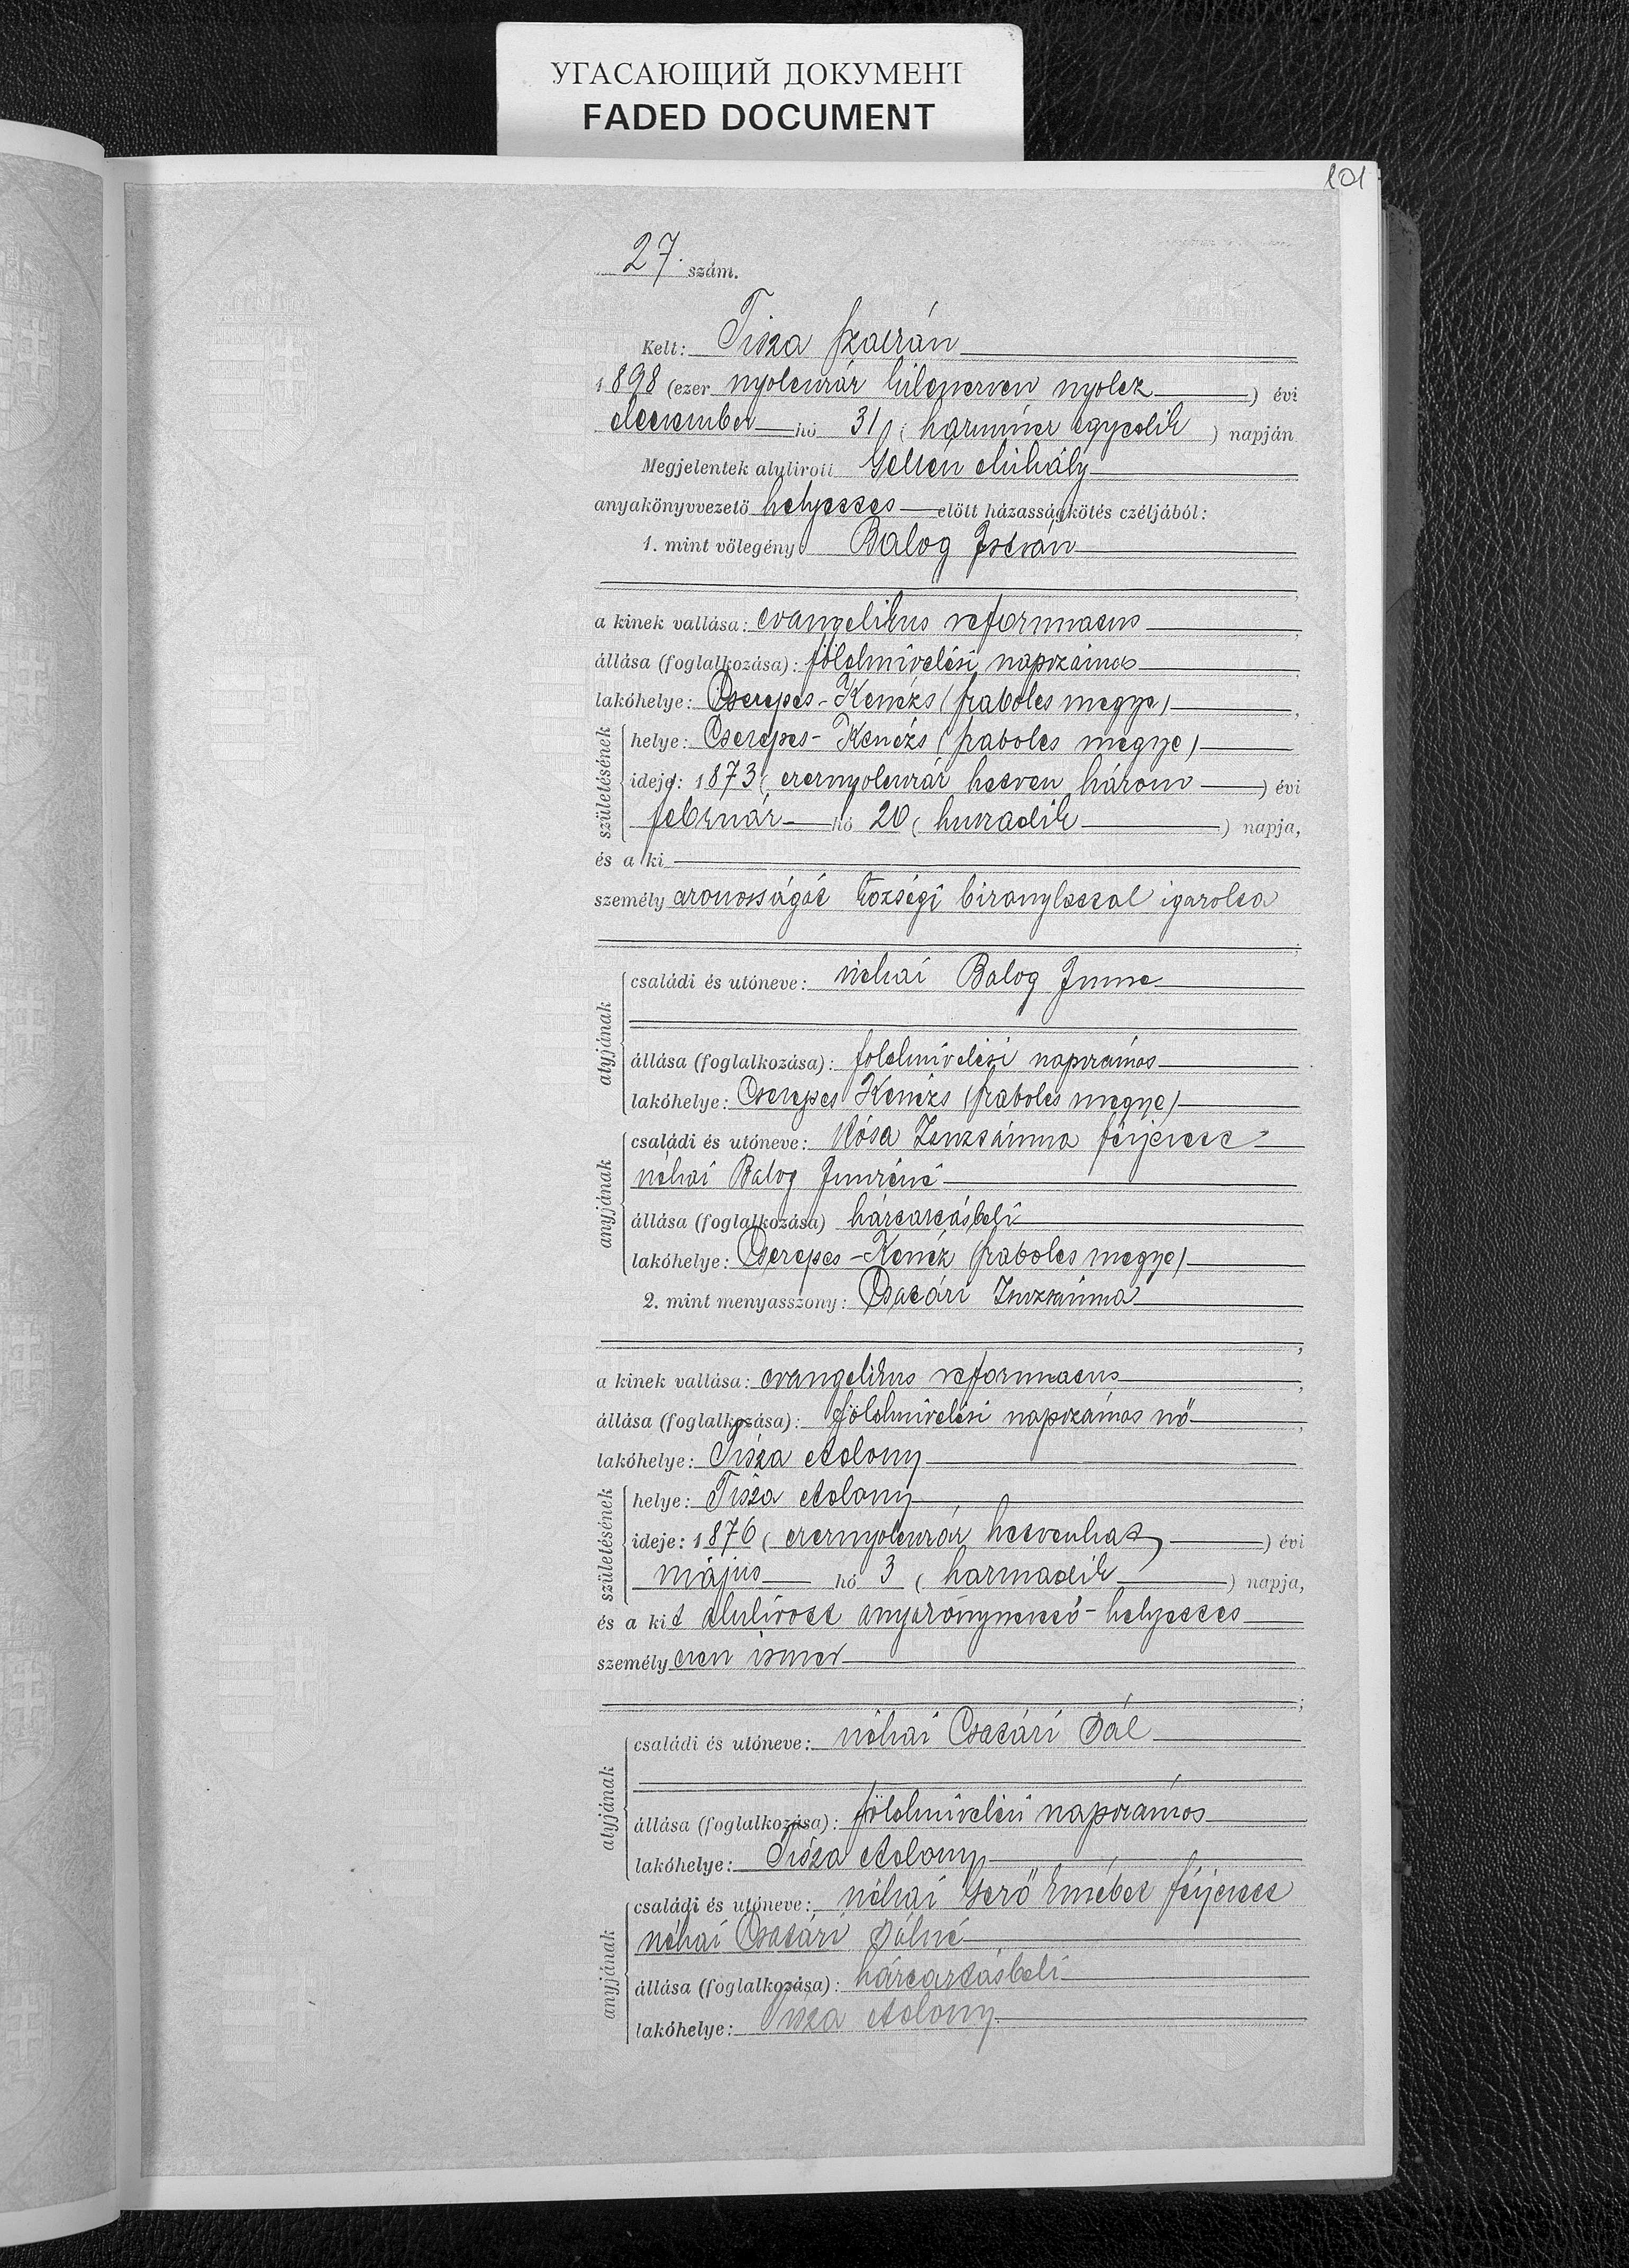 УГАСАЮЩИЙ ДОКУМЕНТ
FADED DOCUMENT
101
27. szám.
Kelt: Tisza Szalván
1898 (ezer nyolczszáz kilenczven nyolcz) évi
deczember hó 31 (harmincz egyedik) napján
Megjelentek alulirott Mihály
anyakönyvvezető helyettes előtt házasságkötés czéljából:
1. mint vőlegény Balog István
a kinek vallása: evangelikus reformatus
állása (foglalkozása): földmivelési napszámos
lakóhelye: Cserepes-Kenézs (Szabolcs megye)
születésének
helye: Cserepes-Kenézs (Szabolcs megye)
ideje: 1873 (ezernyolczszáz hetven három) évi
február hó 20 (huszadik) napja,
és a ki
személy azonosságát községi bizonylattal igazolta
atyjának
családi és utóneve: néhai Balog Imre
állása (foglalkozása): földmivelési napszámos
lakóhelye: Cserepes Kenézs (Szabolcs megye)
anyjának
családi és utóneve: Rósa Zsuzsánna férjezett
néhai Balog Imréné
állása (foglalkozása) háztartásbeli
lakóhelye: Cserepes-Kenéz (Szabolcs megye)
2. mint menyasszony: Csatári Zsuzsánna
a kinek vallása: evangelikus reformatus
állása (foglalkozása): földmivelési napszámos nő
lakóhelye: Tisza Adony
születésének
helye: Tisza Adony
ideje: 1876 (ezernyolczszáz hetvenhat) évi
május hó 3 (harmadik) napja,
és a kit alulirott anyakönyvvezető-helyettes
személyesen ismer
atyjának
családi és utóneve: néhai Csatári Pál
állása (foglalkozása): földmivelési napszámos
lakóhelye: Tisza Adony
anyjának
családi és utóneve: néhai Erzsébet férjezett
néhai Csatári Pálné
állása (foglalkozása): háztartásbeli
lakóhelye: Tisza Adony